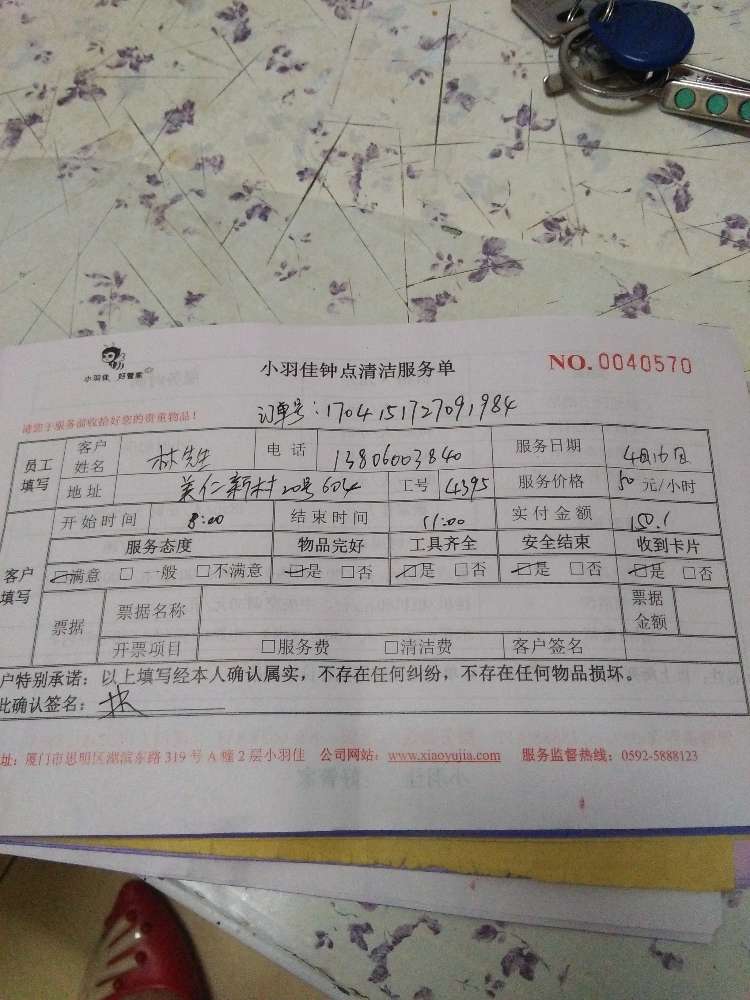 小羽佳 好管家
小羽佳钟点清洁服务单
NO. 0040570
请您于服务前收拾好您的贵重物品!
订单号:1704151727091984
员工填写 客户姓名 林先生 电话 13806003840 服务日期 4月16日
地址 美仁新村20号604 工号 4395 服务价格 50 元/小时
客户填写 开始时间 8:00 结束时间 11:00 实付金额 150.
服务态度 物品完好 工具齐全 安全结束 收到卡片
☑满意 □一般 □不满意 ☑是 □否 ☑是 □否 ☑是 □否 ☑是 □否
票据 票据名称 票据金额
开票项目 □服务费 □清洁费 客户签名
户特别承诺:以上填写经本人确认属实,不存在任何纠纷,不存在任何物品损坏。
此确认签名:林
址:厦门市思明区湖滨东路 319 号 A 幢 2 层小羽佳 公司网站:www.xiaoyujia.com 服务监督热线:0592-5888123